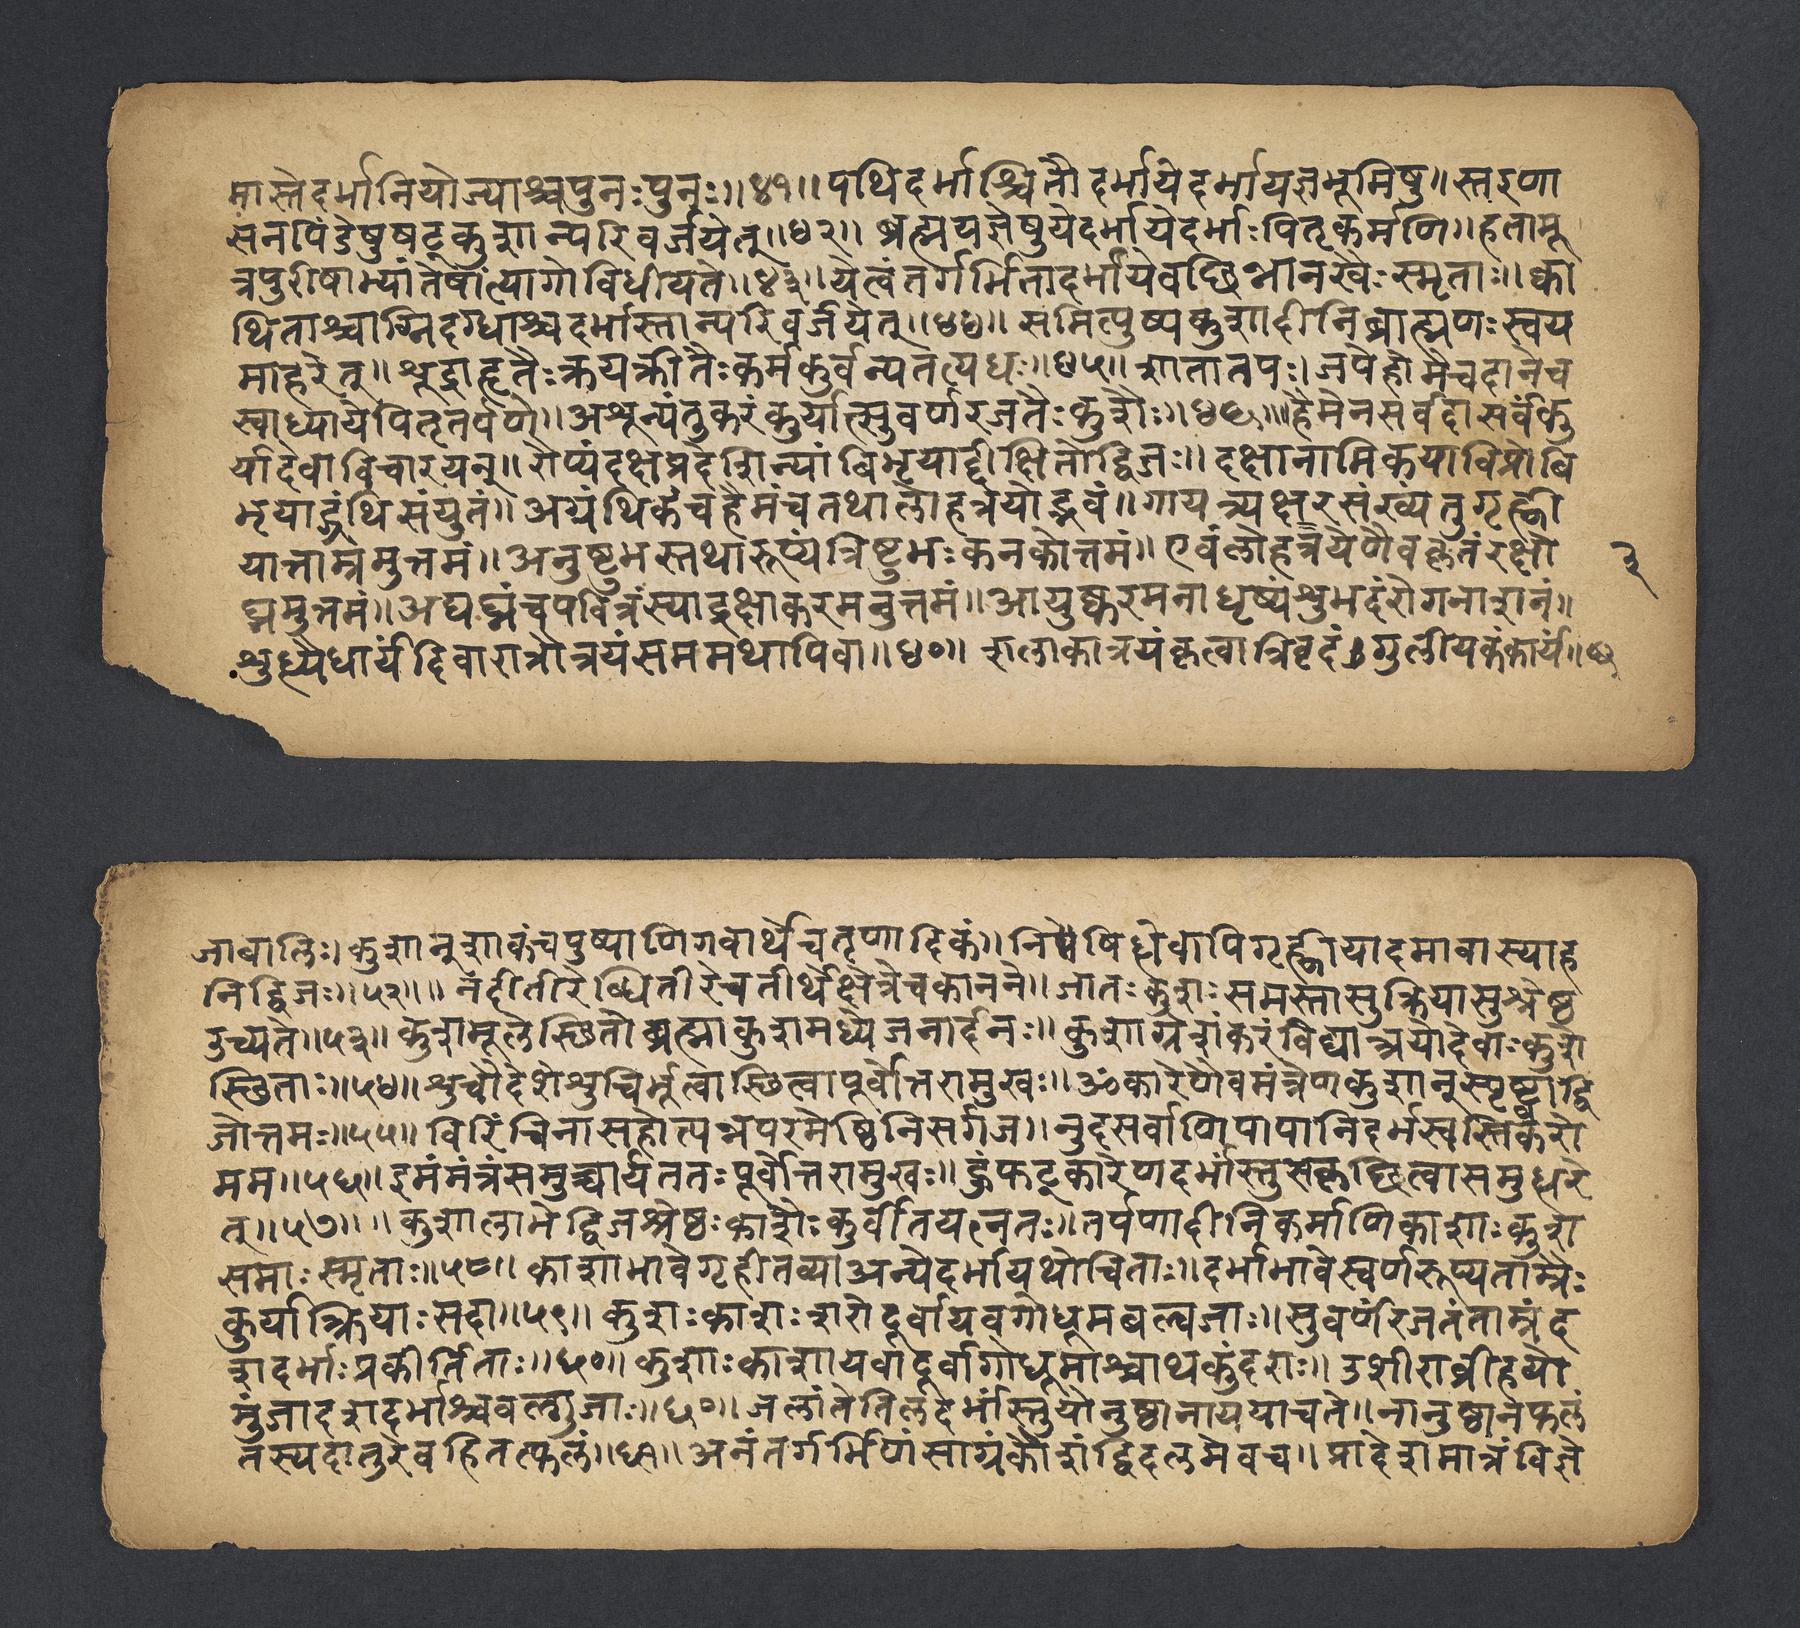 मास्तेदर्भानियोज्याश्चपुनःपुनः॥४१॥पथिदर्भाश्चितौदर्भायेदर्भायज्ञभूमिषु॥स्तरणा
संनपिंडेषुषट्कुशान्परिवर्जयेत्॥४२॥ब्रह्मयज्ञेषुयेदर्भायेदर्भाःपितृकर्मणि॥हतामू
त्रपुरीषाभ्यांतेषांत्यागोविधीयते॥४३॥येत्वंतर्गर्भितादर्भायेवछिन्नानखैःस्मृताः॥क्वा
थिताश्चाग्निदग्धाश्चदर्भास्तान्परिवर्जयेत्॥४४॥समित्पुष्पकुशादीनिब्राह्मणःस्वय
माहरेत्॥शूद्राहृतैःक्रयक्रीतैःकर्मकुर्वन्पतत्यधः॥४५॥शातातपः।जपेहोमेचदानेच
स्वाध्यायेपितृतर्पणे॥अशून्यंतुकरंकुर्यात्सुवर्णरजतैःकुशैः॥४६॥हैमेनसर्वदासर्वंकु
र्यादेवाविचारयन्॥रौप्यंदक्षप्रदेशिन्यांबिभृयाद्दीक्षितोद्विजः॥दक्षानामिकयाविप्रोबि
भृयाद्ग्रंथिसंयुतं॥अग्रंथिकंचहैमंचतथालोहत्रयोद्भवं॥गायत्र्यक्षरसंख्यंतुगृह्णी
यात्ताम्रमुत्तमं॥अनुष्टुभस्तथारूप्यंत्रिष्टुभःकनकोत्तमं॥एवंलोहत्रयेणैवकृतंरक्षो
३
घ्नमुत्तमं॥अघघ्नंचपवित्रंस्याद्रक्षाकरमनुत्तमं॥आयुष्करमनाधृष्यंशुभदंरोगनाशनं॥
शुध्यैधार्यंदिवारात्रौत्रयंसममथापिवा॥५०॥शलाकात्रयंकृत्वात्रिवृदंगुलीयकंकार्यं॥
जाबालिः।कुशान्शाकंचपुष्पाणिगवार्थेचतृणादिकं॥निषिद्धेवापिगृह्णीयादमावास्याह
निद्विजः॥५२॥नदीतीरेब्धितीरेचतीर्थेक्षेत्रेचकानने॥जातःकुशःसमस्तासुक्रियासुश्रेष्ठ
उच्यते॥५३॥कुशमूलेस्थितोब्रह्माकुशमध्येजनार्दनः॥कुशाग्रेशंकरंविद्यात्त्रयोदेवाःकुशे
स्थिताः॥५४॥शुचौदेशेशुचिर्भूत्वास्थित्वापूर्वोत्तरामुखः॥ॐकारेणैवमंत्रेणकुशान्स्पृष्ट्वाद्वि
जोत्तमः॥५५॥विरिंचिनासहोत्पन्नपरमेष्ठिनिसर्गज॥नुदसर्वाणिपापानिदर्भस्वस्तिकरो
मम॥५६॥इमंमंत्रंसमुच्चार्यततःपूर्वोत्तरामुखः॥हुंफट्कारेणदर्भांस्तुसकृच्छित्वासमुद्धरे
त्॥५७॥कुशालाभेद्विजश्रेष्ठःकाशैःकुर्वीतयत्नतः॥तर्पणादीनिकर्माणिकाशाःकुश
समाःस्मृताः॥५८॥काशाभावेगृहीतव्याअन्येदर्भायथोचिताः॥दर्भाभावेस्वर्णरूप्यताम्रैः
कुर्यात्क्रियाःसदा॥५९॥कुशाःकाशाःशरोदूर्वायवगोधूमबल्वजाः॥सुवर्णंरजतंताम्रंद
शदर्भाःप्रकीर्तिताः॥६०॥कुशाःकाशायवादूर्वागोधूमाश्चाथकुंदराः॥उशीराव्रीहयो
मुंजादशदर्भाश्चबल्गुजाः॥६०॥जलांतेतिलदर्भांस्तुयोनुष्ठानाययाचते॥नानुष्ठानफलं
तस्यदातुरेवहितत्फलं॥६१॥अनंतर्गर्भिणंसाग्रंकौशंद्विदलमेवच॥प्रादेशमात्रंविज्ञे